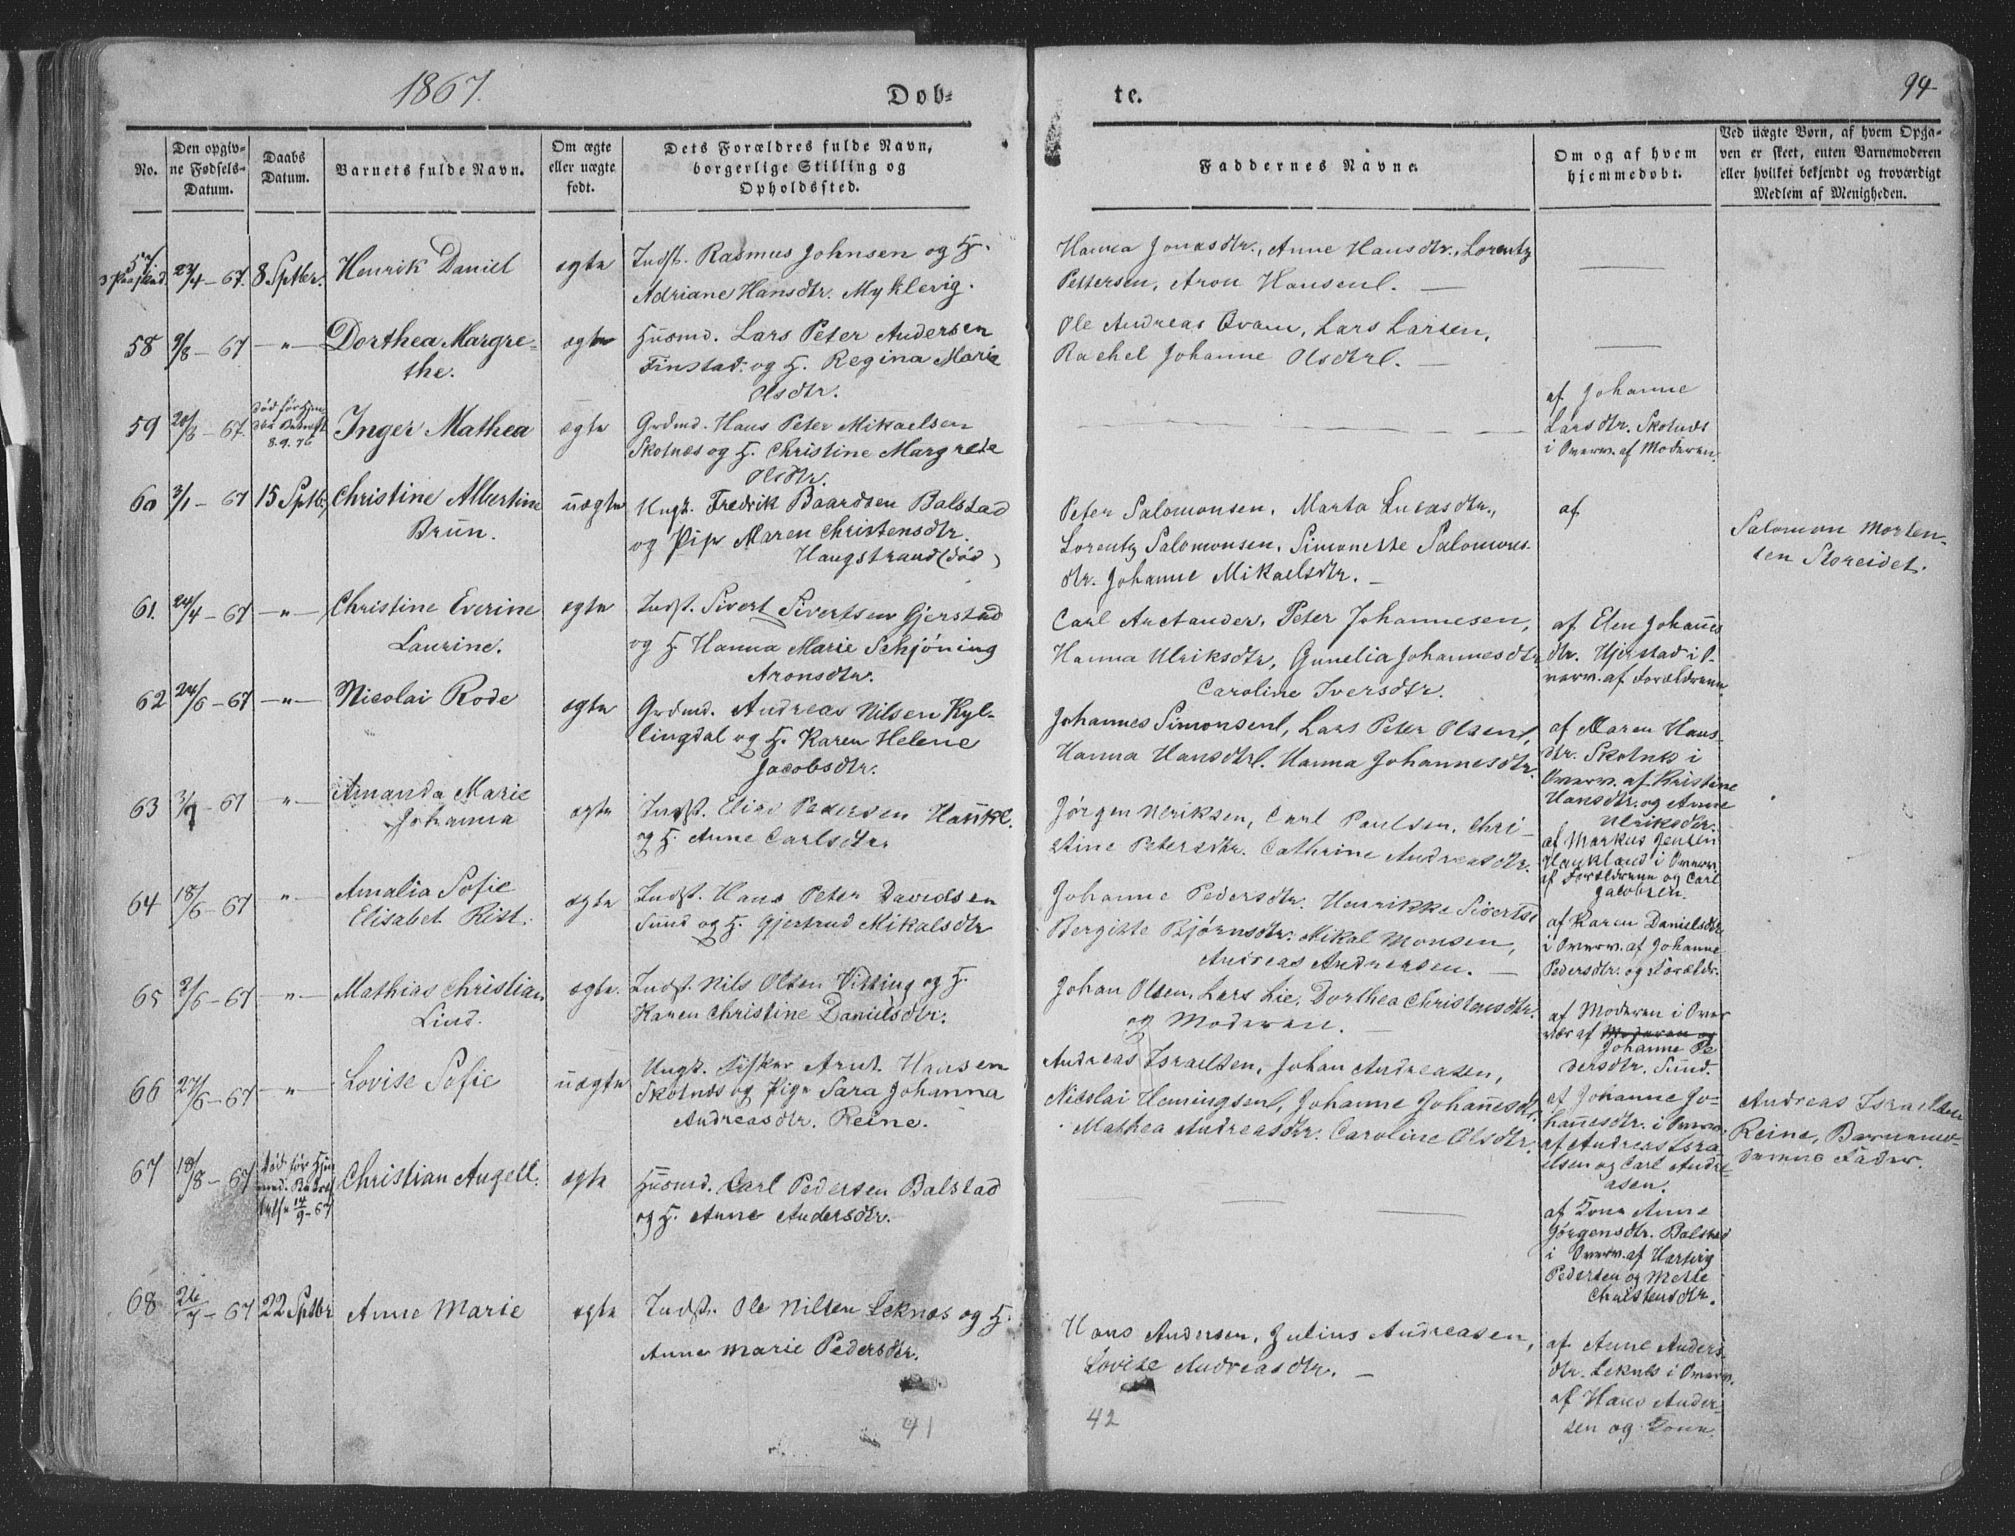 1867.
Dob-
te.
94
No.
Den opgiv-
ne Fødsels-
Datum.
Daabs
Datum.
Barnets fulde Navn.
Om ægte
eller uægte
født.
Dets Forældres fulde Navn,
borgerlige Stilling og
Opholdssted.
Faddernes Navne.
Om og af hvem
hjemmedøbt.
Ved uægte Børn, af hvem Opga-
ven er skeet, enten Barnemoderen
eller hvilket bekjendt og troværdigt
Medlem af Menigheden.
57
23/4 - 67.
8 Sptbr.
Henrik Daniel
ægte
Indst. Rasmus Johnsen og H.
Adriane Hansdtr. Myklevig.
Hanna Jonasdtr., Anne Hansdtr., Lorentz
Pettersen, Aron Hansen. —
58
9/8 - 67
—"—
Dorthea Margre-
the.
ægte
Husmd. Lars Peter Andersen
Finstad. og H. Regina Marie
Olsdtr.
Ole Andreas Qvam, Lars Larsen,
Rachel Johanne Olsdtr. —
59
20/8 - 67.
død før
8.9.
Inger Mathea
ægte
Grdmd. Hans Peter Mikaelsen
Skotnæs og H. Christine Margrete
Olsdtr.
af Johanne
Larsdtr. Skotnæs
i Overv. af Moderen.
60
3/1 - 67
15 Sptbr.
Christine Albertine
Brun.
uægte
Ungk. Fredrik Baardsen Balstad
og Pige Maren Christensdtr.
Haugstrand (død)
Peter Salomonsen, Marta Lucasdtr.,
Lorentz Salomonsen, Simonette Salomons-
dtr. Johanne Mikaelsdtr. —
af
Salomon Morten-
sen Storeidet.
61.
24/4 - 67
—"—
Christine Everine
Laurine.
ægte
Indst. Sivert Sivertsen Gjerstad
og H Hanna Marie Schjøning
Aronsdtr.
Carl Alexander, Peter Johannesen,
Hanna Ulriksdtr, Gunelia Johannesdtr
Caroline Iversdtr.
af Elen Johannes
dtr. Hjerstad i O-
verv. af Forældrene
62
24/6 - 67
—"—
Nicolai Rode
ægte
Grdmd. Andreas Nilsen Kyl-
lingdal og H. Karen Helene
Jacobsdtr.
Johannes Simonsen, Lars Peter Olsen,
Hanna Hansdtr. Hanna Johannesdtr.
af Maren Hans-
dtr. Skotnæs i
Overv. af Kristine
Hansdtr. og Anne
Ulriksdtr.
63
- 67
—"—
Amanda Marie
Johanna
ægte
Indst. Elias Pedersen Haukl.
og H. Anne Carlsdtr.
Jørgen Ulriksen, Carl Paulsen, Chri-
stine Petersdtr. Cathrine Andreasdtr.
af Markus Jensen
Haukland i Overv.
af Forældrene og Carl
Jacobsen.
64
18/6 - 67
—"—
Amalia Sofie
Elisabet Rist.
ægte
Indst. Hans Peter Davidsen
Sund og H. Gjertrud Mikalsdtr
Johanne Pedersdtr. Henrikke Sivertsd
Bergitte Bjørnsdtr. Mikal Monsen,
Andreas Andreasen. —
af Karen Danielsdtr
i Overv. af Johanne
Pedersdtr. og Forældr.
65
2/6 - 67
—"—
Mathias Christian
Lind.
ægte.
Indst. Nils Olsen Vitting og H.
Karen Christine Danielsdtr.
Johan Olsen, Lars Lie, Dorthea Christensdtr.
og Moderen. —
af Moderen i Over
vær af Moderen og
Johanne Pe
dersdtr. Sund.
66
27/6 - 67
"
Lovise Sofie
uægte
Ungk. Fisker Arnt Hansen
Skotnæs og Pige Sara Johanna
Andreasdtr. Reine.
Andreas Israelsen, Johan Andreasen,
Nicolai Hemingsen, Johanne Johannesdtr,
Mathea Andreasdtr. Caroline Olsdtr.
af Johanne Jo-
hannesdtr. i Overv.
af Andreas Isra-
elsen og Carl Andre-
asen.
Andreas Israelsen
Reine, Barnemo-
derens Fader.
67
18/8 - 67
Død før Hjem
med. Bekræf
telse 14/9 - 67
Christian Angell.
ægte
Husmd. Carl Pedersen Balstad
og H. Anne Andersdtr.
af Kone Anne
Jørgensdtr. Balstad
i Overv. af Hartvig
Pedersen og Mette
Christensdtr.
68
- 67
22 Sptbr
Anne Marie
ægte
Indst. Ole Nilsen Leknæs og H.
Anne Marie Pedersdtr.
Hans Andersen, Julius Andreasen,
Lovise Andreasdtr. —
af Anne Anders
dtr. Leknæs i Overv.
af Hans Ander-
sen og Kone.
41
42